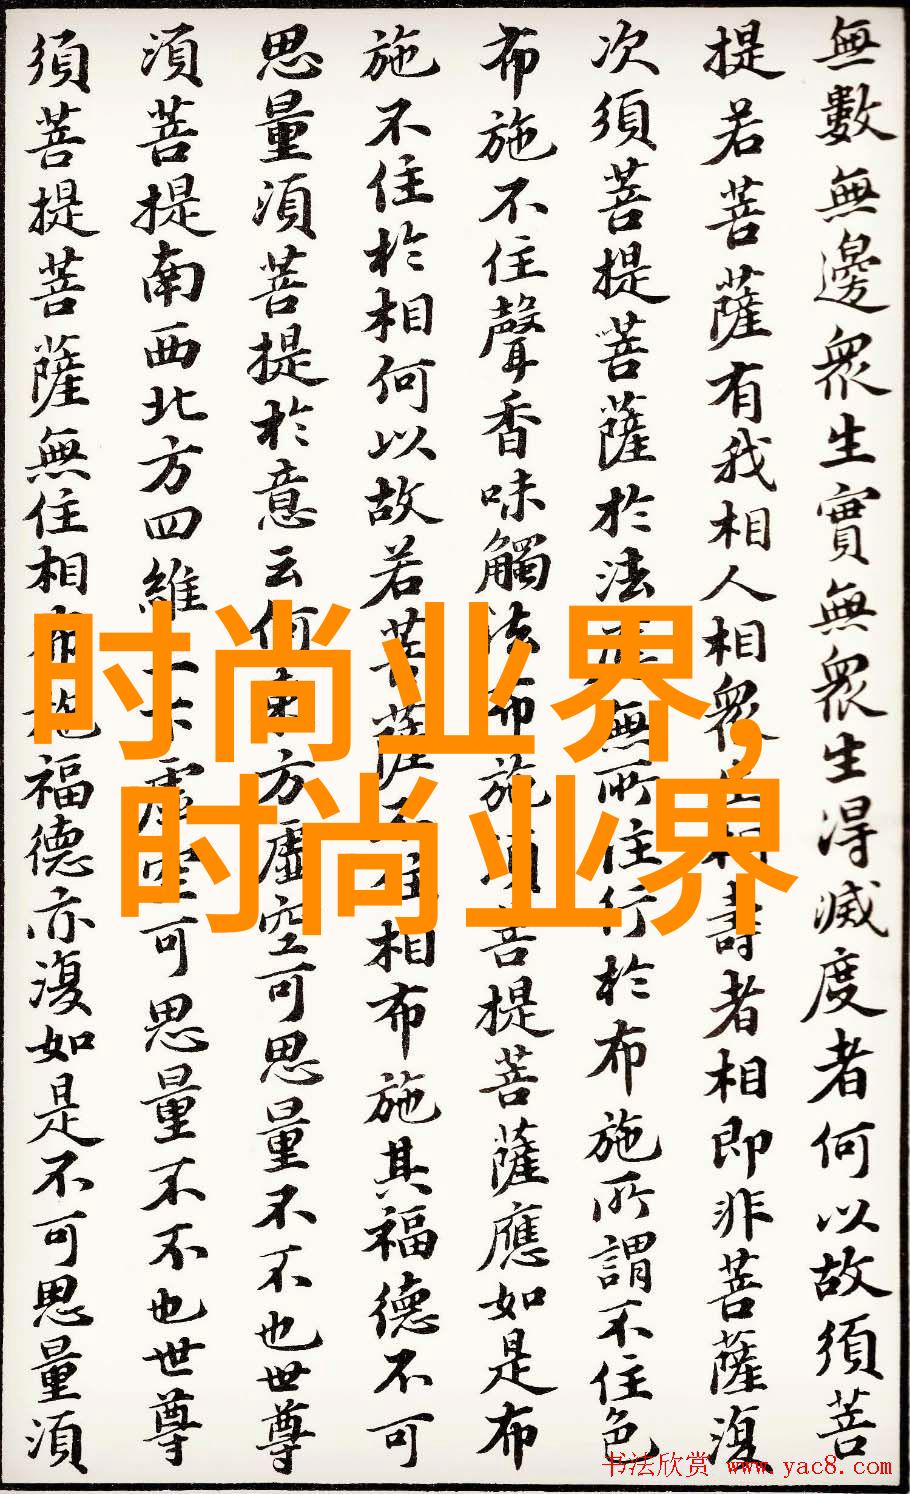 無數無邊眾生實無眾生得滅度者何以故須菩
提若菩薩有我相人相眾生相壽者相即非菩薩復
次須菩提菩薩於法應無所住行於布施所謂不住色
布施不住聲香味觸法布施須菩提菩薩應如是布
施不住於相何以故若菩薩不住相布施其福德不可
思量須菩提於意云何東方虛空可思量不不也世尊
須菩提南西北方四維上下虛空可思量不不也世尊
須菩提菩薩無住相布施福德亦復如是不可思量須
时尚业界,
时尚业界
书法欣赏 www.yac8.com